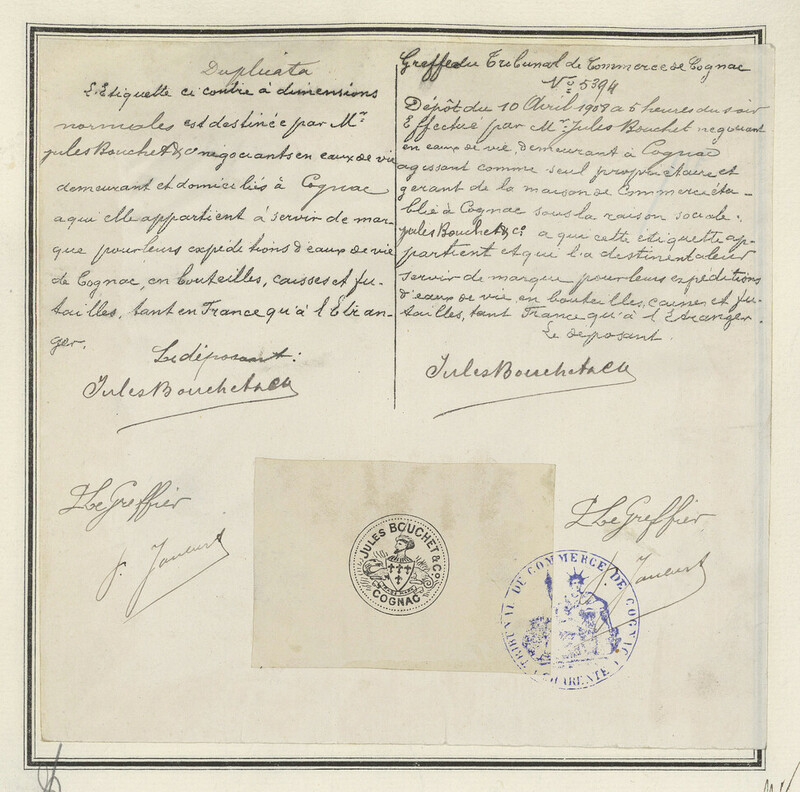 Duplicata
L'Etiquette ci contre à dimensions
normales est destinée par Mr
Jules Bouchet & Co négociants en eaux de vie
demeurant et domiciliés à Cognac
a qui elle appartient à servir de mar-
que pour leurs expéditions d'eaux de vie
de Cognac, en bouteilles, caisses et fu-
tailles, tant en France qu'à l'Etran-
ger.
Le déposant:
Jules Bouchet & Co
Greffe du Tribunal de Commerce de Cognac
No 5394
Dépôt du 10 Avril 1908 a 5 heures du soir
Effectué par Mr. Jules Bouchet négociant
en eaux de vie, demeurant à Cognac
agissant comme seul propriétaire et
gérant de la maison de Commerce éta-
blie à Cognac sous la raison sociale.
Jules Bouchet & Co a que cette étiquette ap-
partient et qui l'a destinent a leur
servir de marque pour leurs expéditions
d'eaux de vie, en bouteilles, caisses et fu-
tailles, tant France qu'à l'Etranger.
Le déposant.
Jules Bouchet & Co
Le Greffier
Le Greffier
JULES BOUCHET & Co
TRADE MARK
COGNAC
TRIBUNAL DE COMMERCE DE COGNAC
CHARENTE